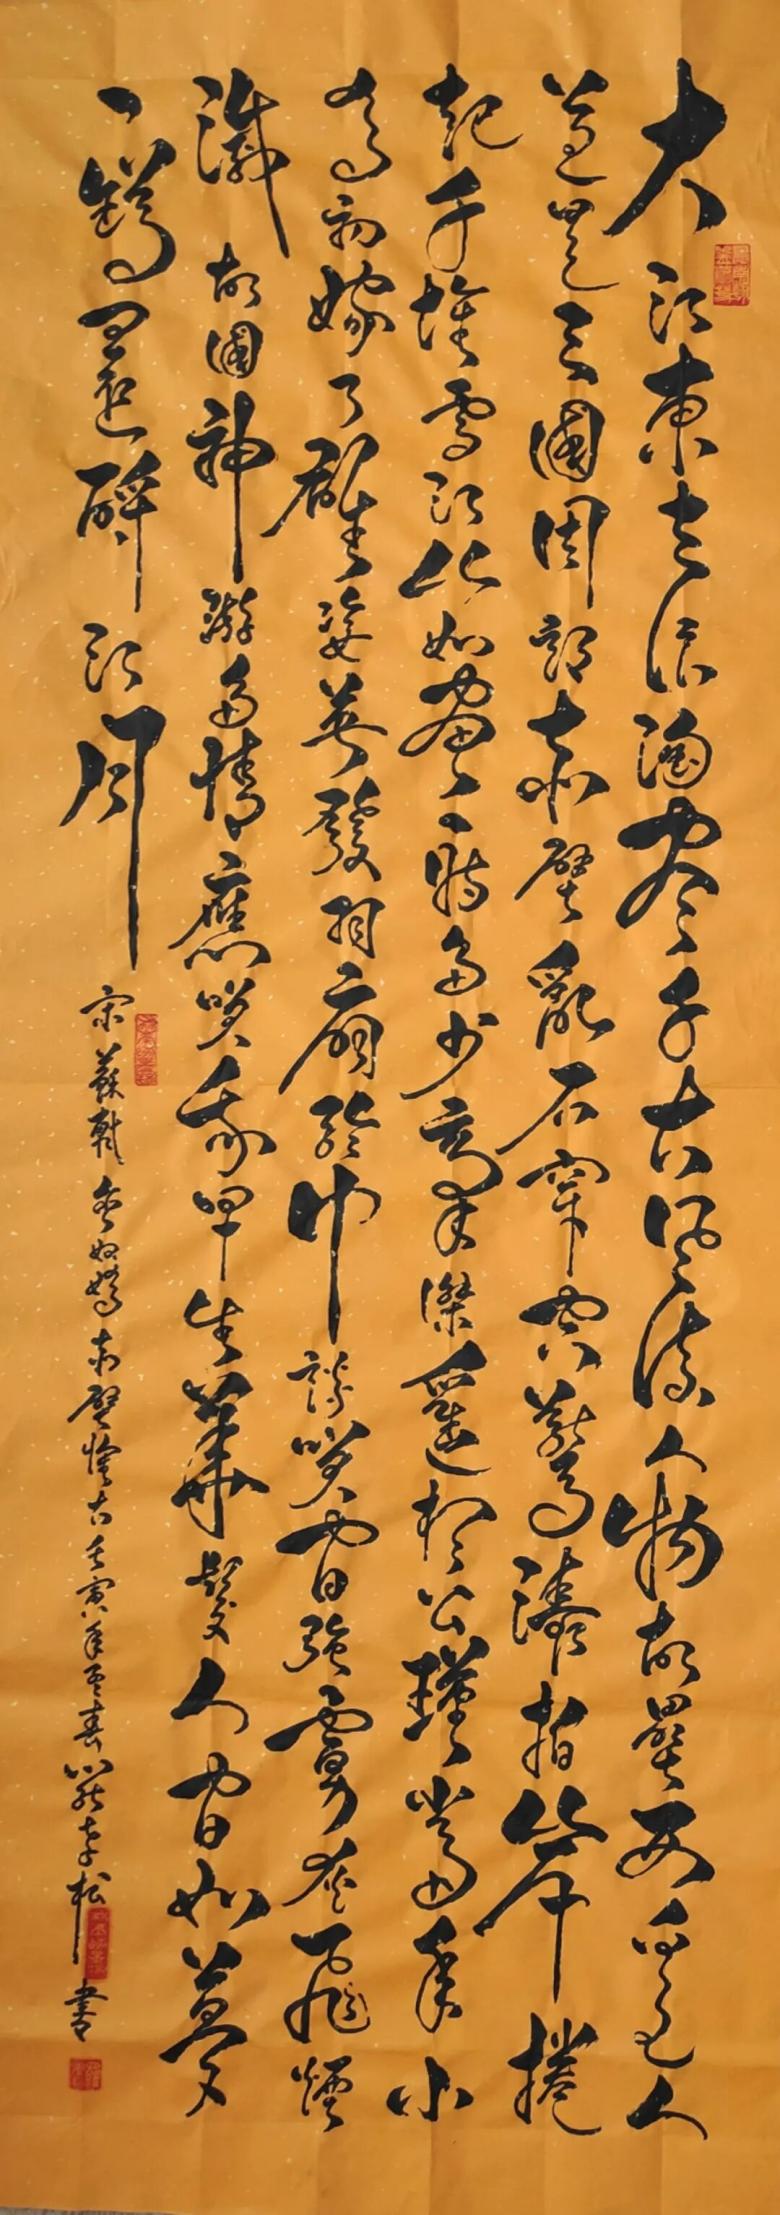 大江東去浪淘尽千古風流人物故壘西邊人
道是三國周郎赤壁亂石穿空驚濤拍岸捲
起千堆雪江山如畫一時多少豪傑遙想公瑾當年小
喬初嫁了雄姿英發羽扇綸巾談笑間強虜灰飛煙
滅故國神游多情應笑我早生華髮人間如夢
一罇還酹江月
宋蘇軾念奴嬌赤壁懷古壬寅年孟春李松書